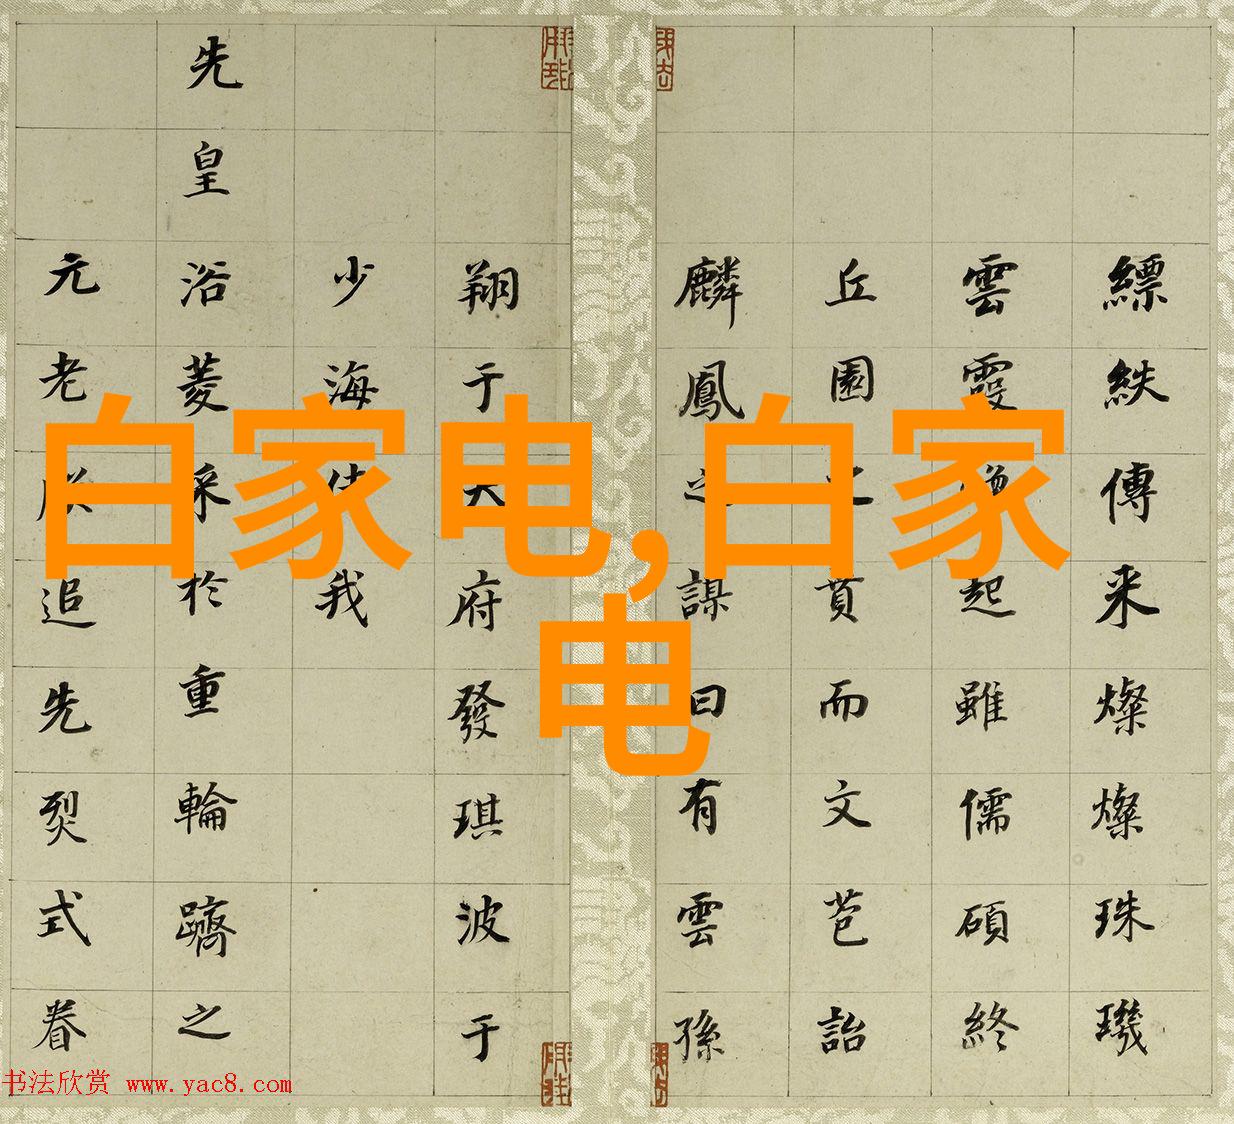 白家电,白家
电
縹紩傳来燦燦珠璣
雲霞起雖儒碩終
丘園之賁而文芭詒
麟鳳之謀曰有雲孫
翔于天府發琪波于
少海使我
先皇浴菱采於重輪躋之
元老朕追先烈式眷
书法欣赏 www.yac8.com